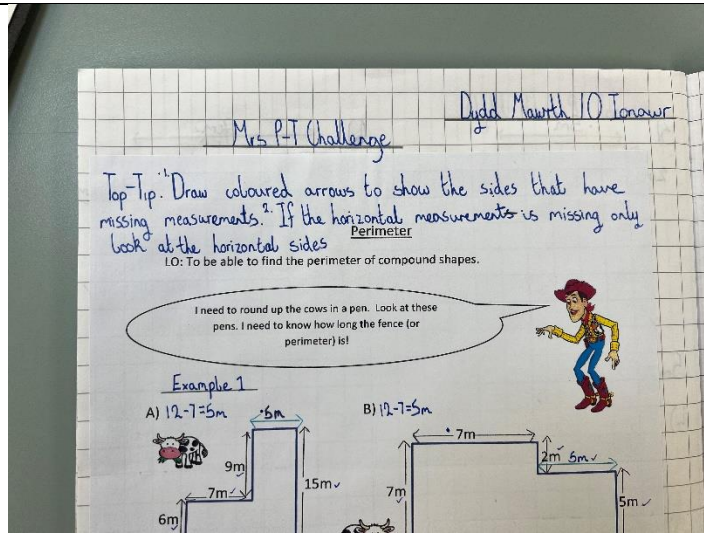 Dydd Mawrth 10 Ionawr
Mrs P-T Challenge
Top-Tip: 1. Draw coloured arrows to show the sides that have
missing measurements. 2. If the horizontal measurements is missing only
look at the horizontal sides
Perimeter
LO: To be able to find the perimeter of compound shapes.
I need to round up the cows in a pen. Look at these
pens. I need to know how long the fence (or
perimeter) is!
Example 1
A) 12-7=5m
5m
9m
7m
15m
6m
B) 12-7=5m
7m
2m
5m
7m
5m